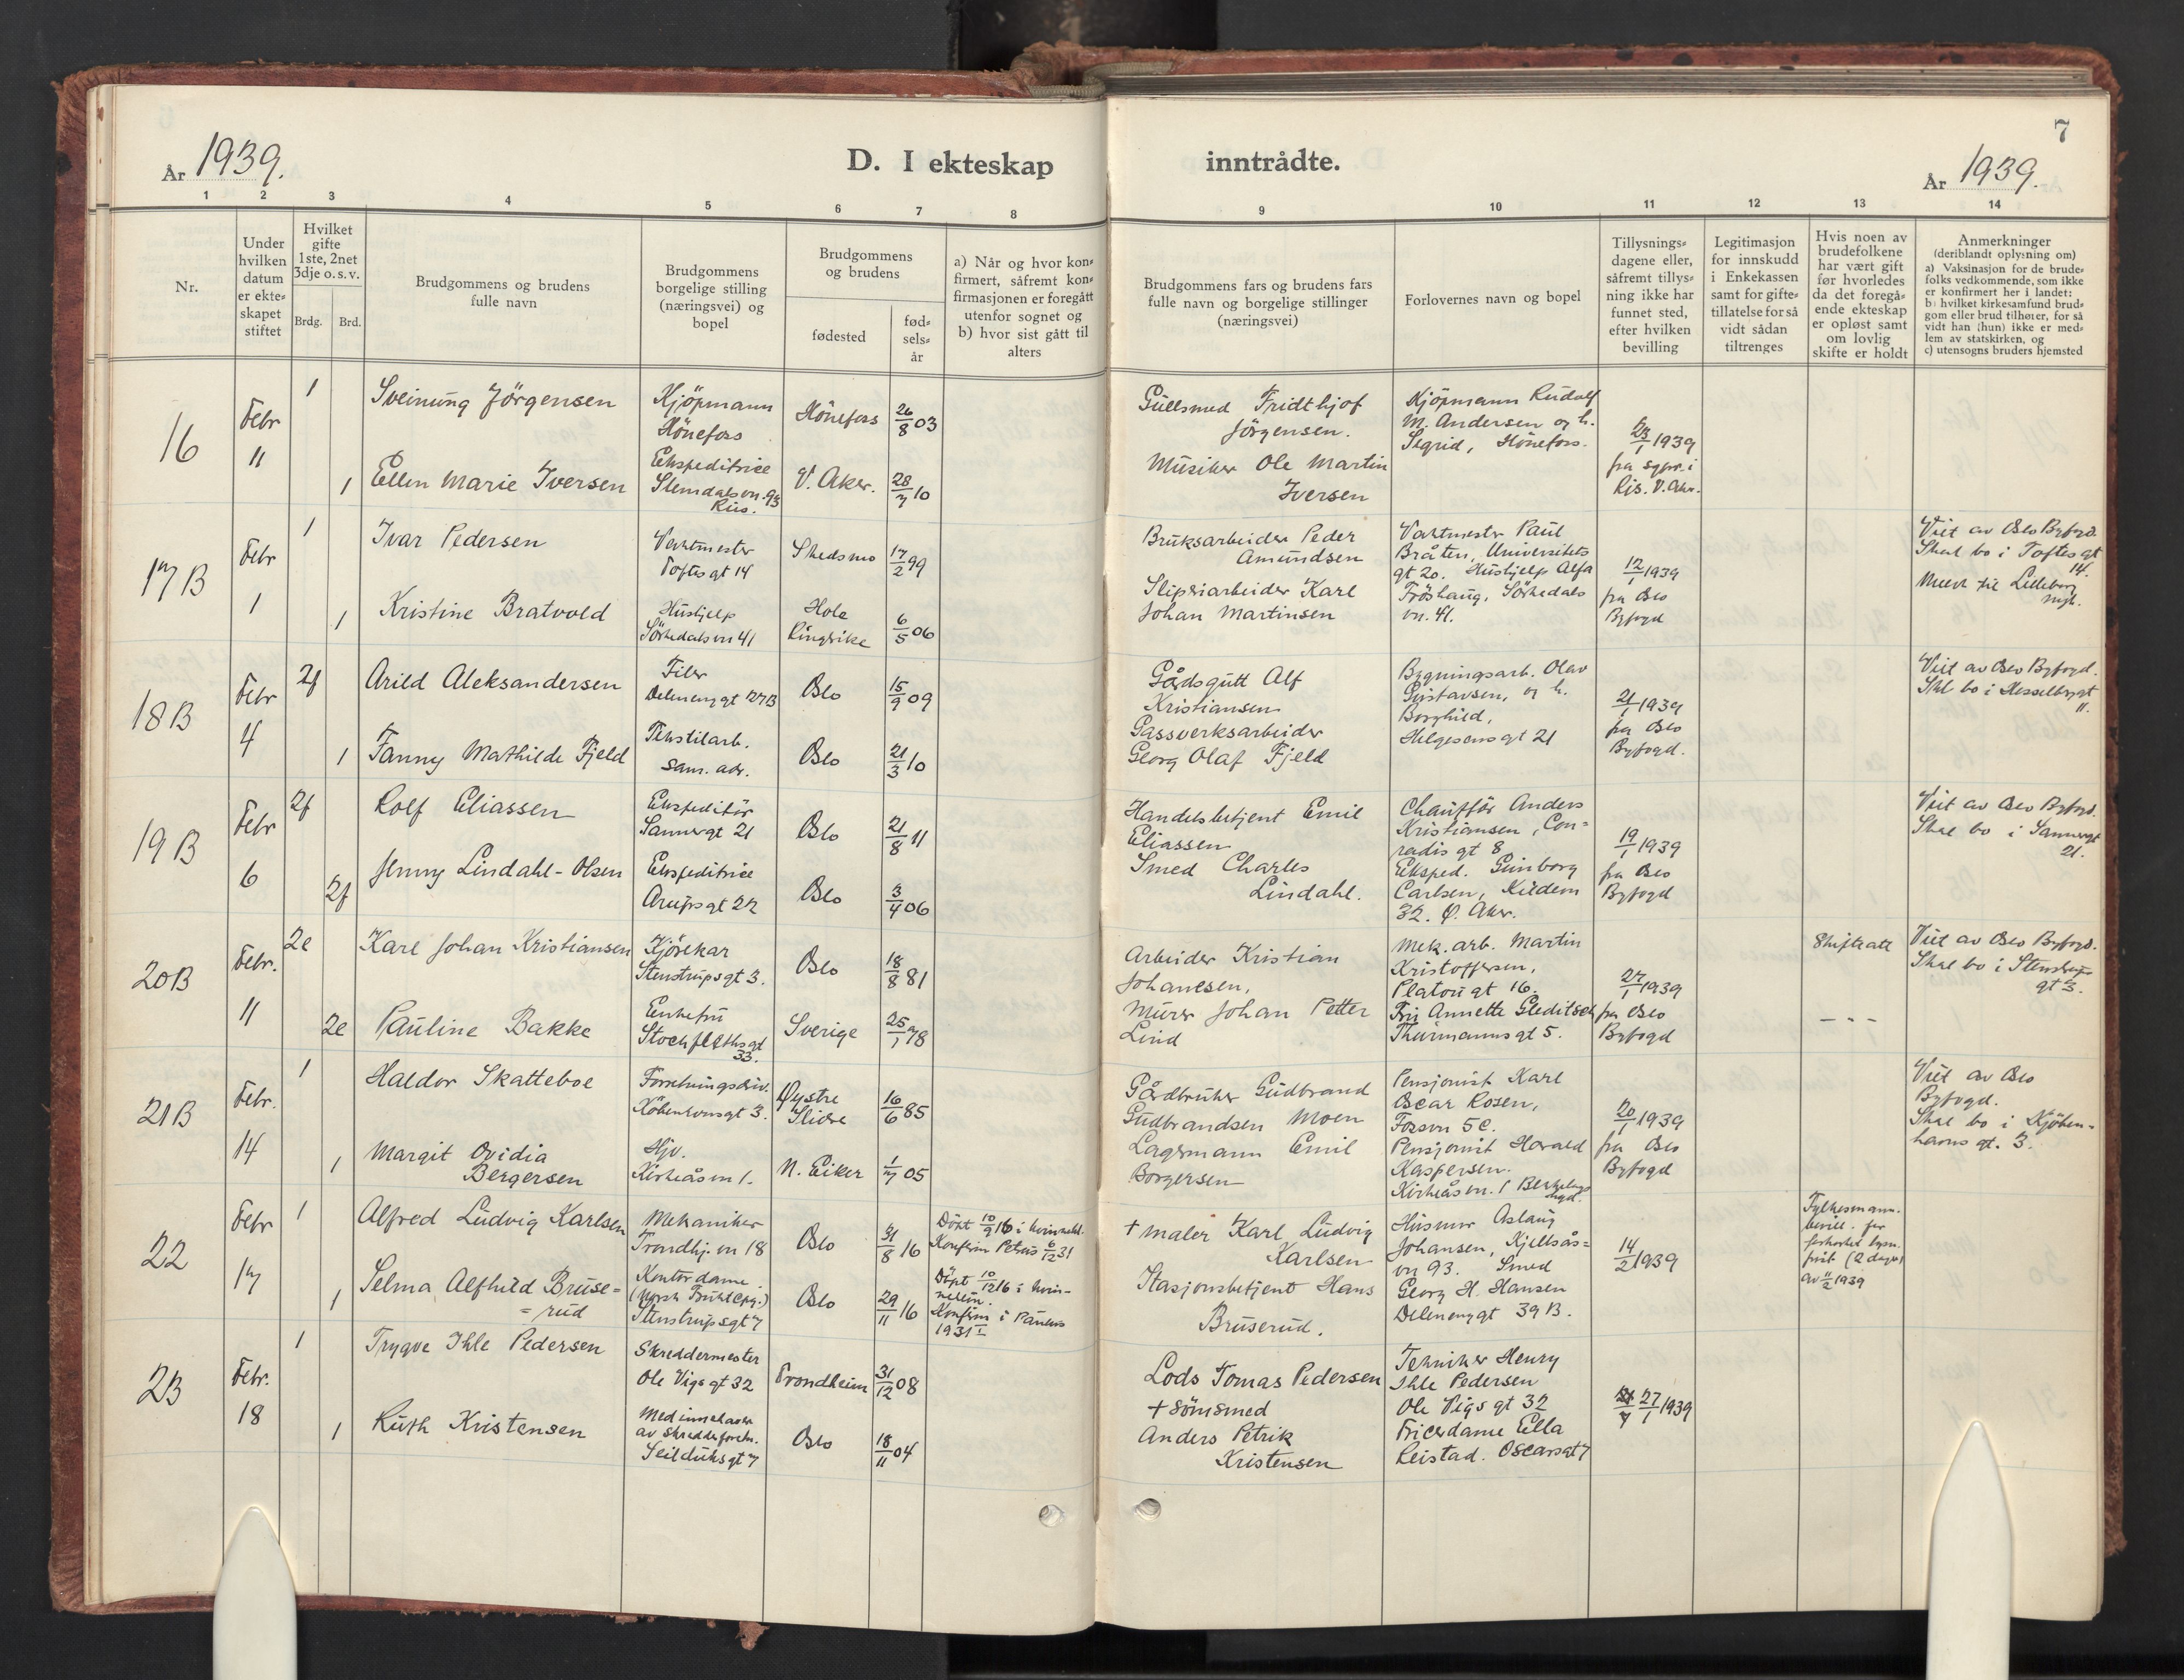 7
År 1939.
D. I ekteskap inntrådte.
År 1939.
1 2 3 4 5 6 7 8 9 10 11 12 13 14
Nr.
Under hvilken datum er ekte= skapet stiftet
Hvilket gifte 1ste, 2net 3dje o. s. v.
Brdg. Brd.
Brudgommens og brudens fulle navn
Brudgommens borgelige stilling (næringsvei) og bopel
Brudgommens og brudens
fødested
fød= sels= år
a) Når og hvor kon= firmert, såfremt kon= firmasjonen er foregått utenfor sognet og b) hvor sist gått til alters
Brudgommens fars og brudens fars fulle navn og borgelige stillinger (næringsvei)
Forlovernes navn og bopel
Tillysnings= dagene eller, såfremt tillys= ning ikke har funnet sted, efter hvilken bevilling
Legitimasjon for innskudd i Enkekassen samt for gifte= tillatelse for så vidt sådan tiltrenges
Hvis noen av brudefolkene har vært gift før hvorledes da det foregå= ende ekteskap er opløst samt om lovlig skifte er holdt
Anmerkninger (deriblandt oplysning om) a) Vaksinasjon for de brude= folks vedkommende, som ikke er konfirmert her i landet: b) hvilket kirkesamfund brud= gom eller brud tilhører, for så vidt han (hun) ikke er med= lem av statskirken, og c) utensogns bruders hjemsted
16
Febr
11
1
Sveinung Jörgensen
Kjöpmann
Hönefoss
Hönefoss
26/8 03
Gullsmed Fridthjof
Jörgensen.
Kjöpmann Rudolf
M. Andersen og h.
Sigrid, Hönefoss.
23/1 1939
fra sypr. i
Ris. V. Aker.
1
Ellen Marie Iversen
Ekspeditrice
Slemdalsvn. 93
Ris.
V. Aker.
28/7 10
Musiker Ole Martin
Iversen
17B
Febr
1
1
Ivar Pedersen
Vaktmester
Toftesgt 14
Skedsmo
17/2 99
Bruksarbeider Peder
Amundsen
Vaktmester Paul
Bråten, Universitets
gt 20. Hushjelp Alfa
Fröshaug, Sörkedals
vn. 41.
12/1 1939
fra Oslo
Byfogd
Viet av Oslo Byfogd.
Skal bo i Toftesgt
14.
Meldt til Lilleborg
mgh.
1
Kristine Bratvold
Hushjelp
Sörkedalsvn 41
Hole
Ringrike
6/5 06
Sliperiarbeider Karl
Johan Martinsen
18B
Febr
4
2f
Arild Aleksandersen
Filer
Delenenggt 27B
Oslo
15/9 09
Gårdsgutt Alf
Kristiansen
Bygningsarb. Olav
Gustavsen, og h.
Borghild,
Helgesensgt 21
21/1 1939
fra Oslo
Byfogd.
Viet av Oslo Byfogd.
Skl bo i Hesselbrggt
11.
1
Fanny Mathilde Fjeld
Tekstilarb.
sam. adr.
Oslo
21/3 10
Gassverksarbeider
Georg Olaf Fjeld
19B
Febr
6
2f
Rolf Eliassen
Ekspeditör
Sannergt 21
Oslo
21/8 11
Handelsbetjent Emil
Eliassen
Chaufför Anders
Kristiansen, Con=
radis gt 8
Eksped. Gunborg
Carlsen, Kildevn
32. Ø. Aker.
19/1 1939
fra Oslo
Byfogd
Viet av Oslo Byfogd.
Skal bo i Sannergt
21.
2f
Jenny Lindahl-Olsen
Ekspeditrice
Arupsgt 22
Oslo
3/4 06
Smed Charles
Lindahl.
20B
Febr.
11
2e
Karl Johan Kristiansen
Kjörekar
Stenstrupsgt 3.
Oslo
18/8 81
Arbeider Kristian
Johansen,
Mek. arb. Martin
Kristoffersen,
Platougt 16.
Fru Annette Gleditsch
Thurmannsgt 5.
27/1 1939
fra Oslo
Byfogd
Skifteatt
Viet av Oslo Byfogd.
Skal bo i Stenstrup
gt 3.
2e
Pauline Bakke
Enkefru
Stockflethsgt
33.
Sverige
25/1 78
Murer Johan Petter
Lind
— " —
21B
Febr.
14
1
Haldor Skatteboe
Forretningsdriv.
Köbenhavnsgt 3.
Øystre
Slidre
16/6 85
Gårdbruker Gudbrand
Gudbrandsen Moen
Pensjonist Karl
Oscar Rosen,
Fossvn 5C.
Pensjonist Harald
Kaspersen.
Kirkeåsvn. 1 Bekkelags
hgd.
20/1 1939
fra Oslo
Byfogd
Viet av Oslo
Byfogd.
Skal bo i Kjöben=
havns gt. 3.
1
Margit Ovidia
Bergersen
Hjv.
Kirkeåsvn 1.
N. Eiker
1/7 05
Lagermann Emil
Borgersen
22
Febr
17
1
Alfred Ludvig Karlsen
Mekaniker
Trondhj. vn 18
Oslo
31/8 16
Döpt 10/9 16 i kvinnekl.
Konfirm Petrus 6/12 31
+ maler Karl Ludvig
Karlsen
Husmor Aslaug
Johansen, Kjellsås=
vn 93. Smed
Georg H. Hansen
Delenenggt 39B.
14/2 1939
Fylkesmann.
bevill. for
forkortet lysn.
frist (2 dager)
av 11/2 1939
1
Selma Alfhild Bruse=
=rud
Kontordame.
(Norsk Frukt Cpg.)
Stenstrupsgt 7
Oslo
29/11 16
Döpt 10/12 16 i kvin-
neklin.
Konfirm i Paulus
1931 I
Stasjonsbetjent Hans
Bruserud.
23
Febr.
18
1
Trygve Ihle Pedersen
Skreddermester
Ole Vigs gt 32
Trondheim
31/12 08
Lods Tomas Pedersen
Tekniker Henry
Ihle Pedersen
Ole Vigs gt 32
Fricerdame Ella
Reistad. Oscarsgt 7
27/1 1939
1
Ruth Kristensen
Medinnehaver
av skredderforetn.
Seilduksgt 7
Oslo
18/11 04
+ Sömsmed
Anders Petrik
Kristensen